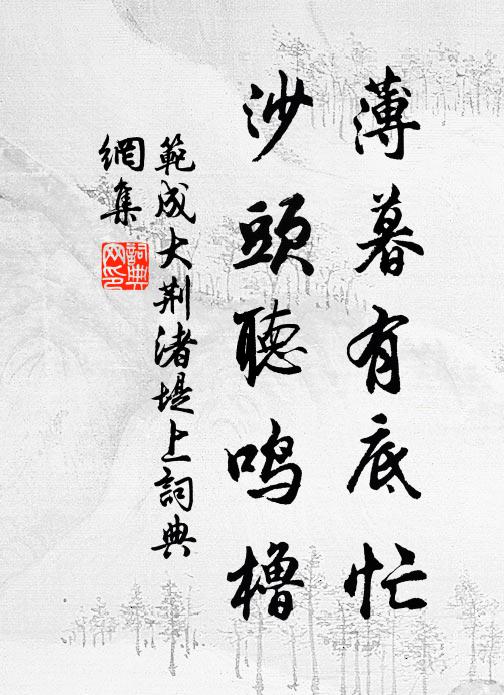 薄暮有底忙
沙頭聽鳴櫓
範成大荆渚堤上詞典
網集
詞典
网印